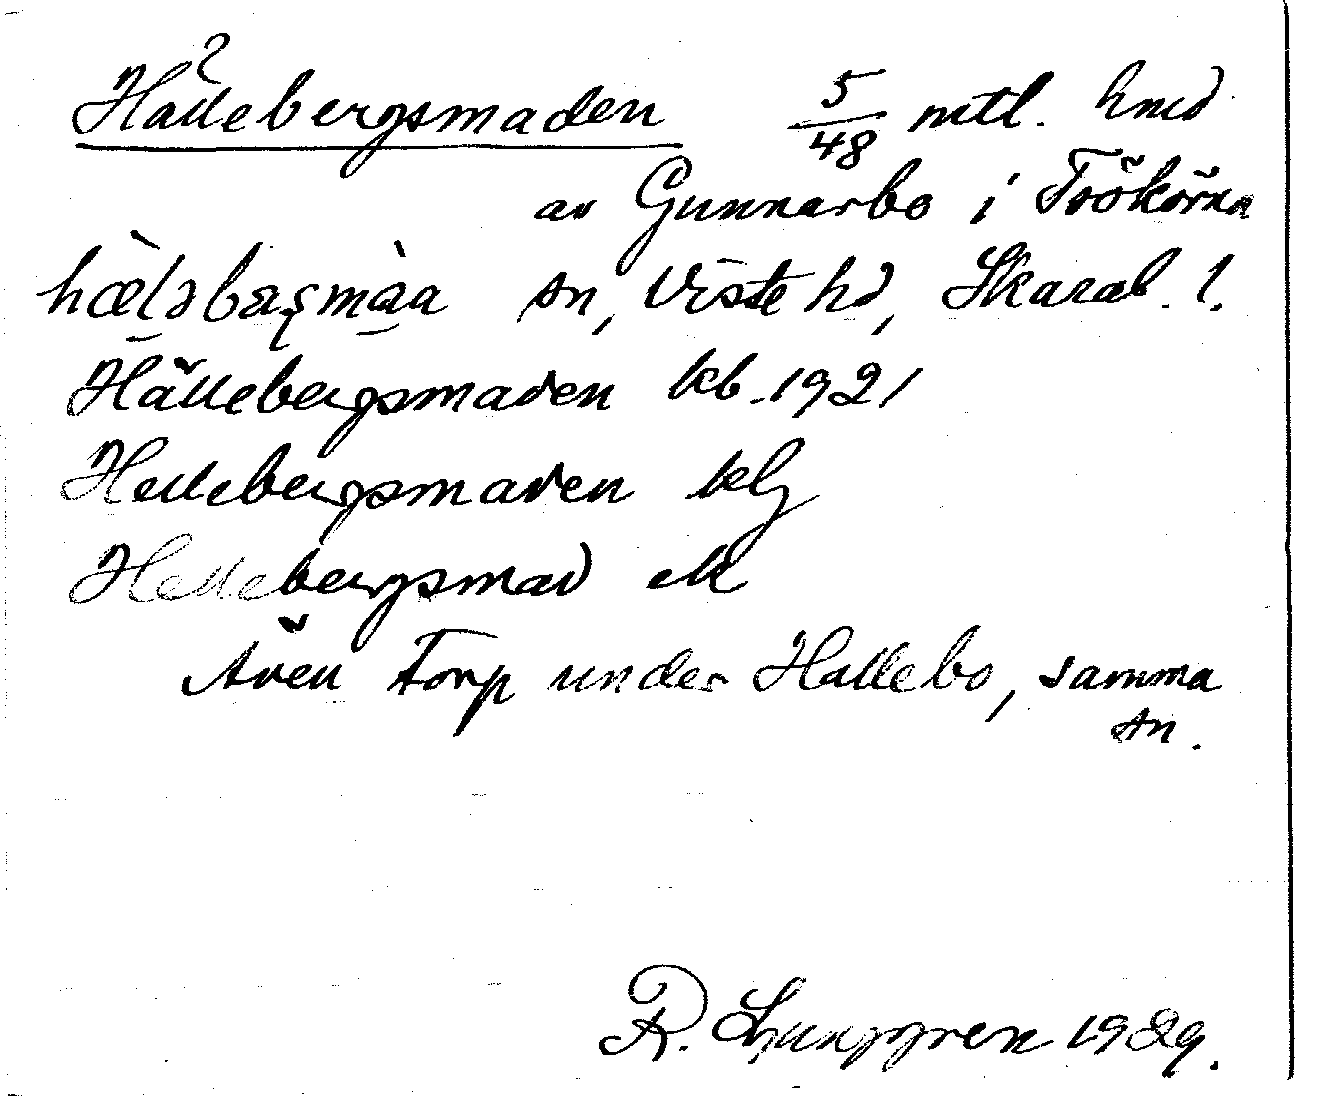 Hällebergsmaden 5/48 mtl. hmd
av Gunnarbo i TröKörna
hælsbærsmàa sn, Viste hd, Skarab. l.
Hällebergsmaden kb. 1921
Hellebergsmaden klj
Hellebergsmad ek
Även Torp under Hallebo, samma
sn.
R. Ljunggren 1929.